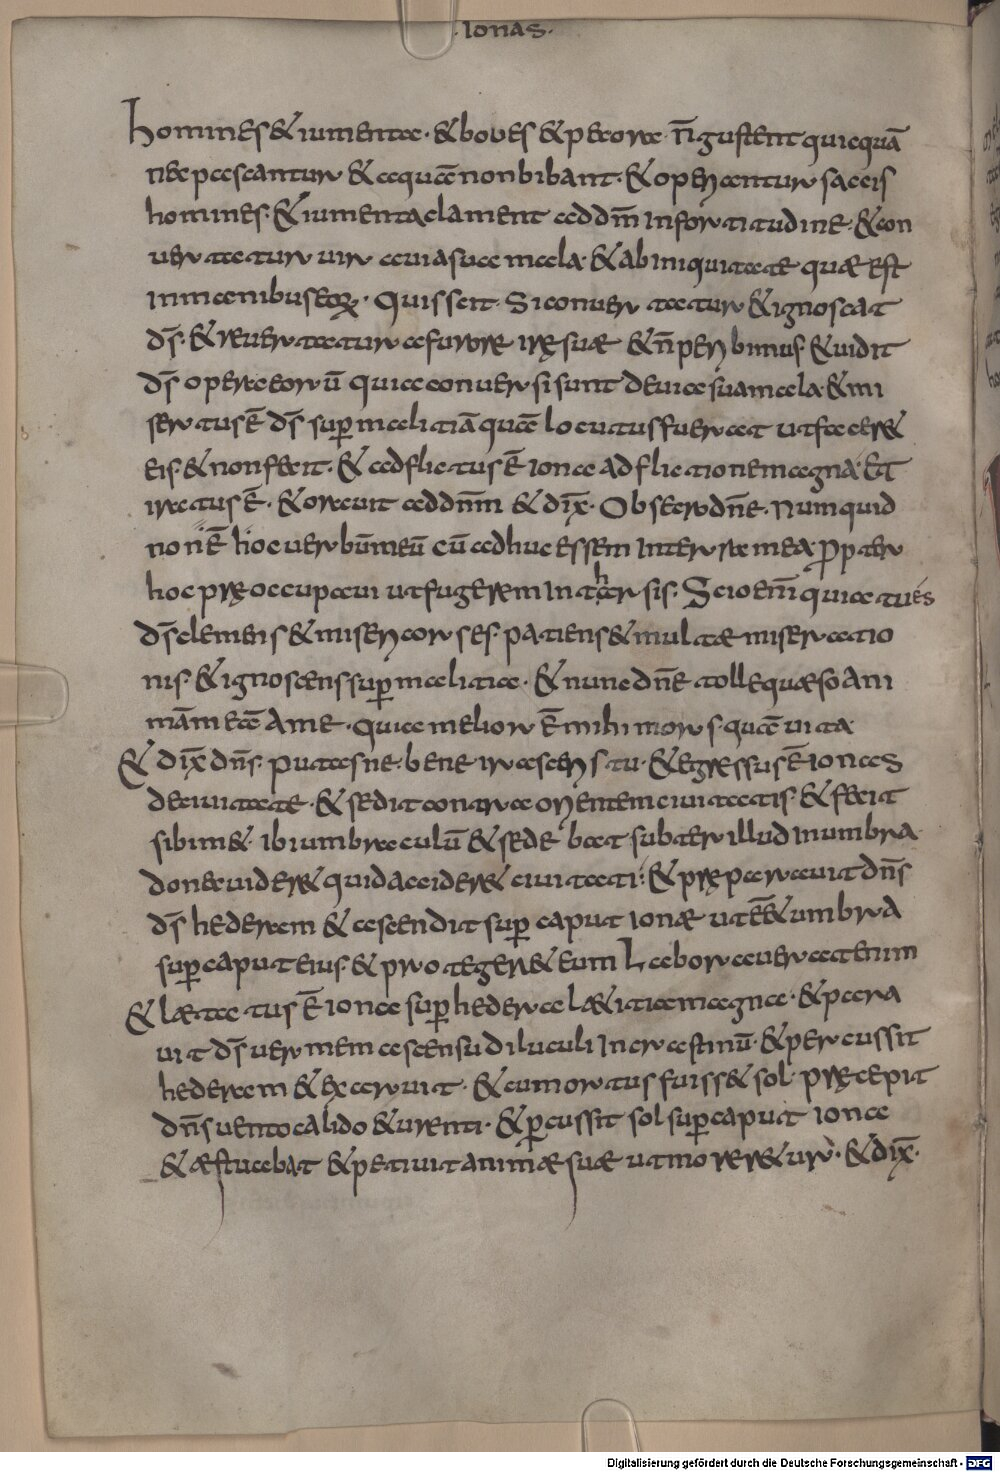 · Ionas ·
Homines & iumenta · & boues & pecora · n̄ gustent quicquā
nec pascantur & aquā non bibant · & operiantur saccis
homines · & iumenta clament ad dm̄ in fortitudine · & con
uertatur uir a uia sua mala · & ab iniquitate quæ est
in manibus eoꝝ · Quis scit · Si conuertatur & ignoscat
ds̄ · & reuertatur a furore irę suæ & n̄ peribimus · & uidit
ds̄ opera eorū quia conuersi sunt de uia sua mala · & mi
sertus ē ds̄ suꝑ malitiā quā locutus fuerat ut facer&
eis · & non fecit · & adflictus ē iona adflictione magna · Et
iratus ē · & orauit ad dn̄m & dix̄ · Obsecro dn̄e · Numquid
non ē hoc uerbū meū cū adhuc essem in terra mea · ꝓpter
hoc pręoccupaui ut fugerem in tharsis · Scio enī quia tu és
ds̄ clemens & misericors es · patiens & multæ miseratio
nis · & ignoscens suꝑ malitia · & nunc dn̄e tolle quæso ani
mam meā a me · quia melior ē mihi mors quā uita
& dix̄ dn̄s · putasne · bene irasceris tu · & egressus ē ionas
de ciuitate · & sedit contra orientem ciuitatis · & fecit
sibim& · ibi umbraculū & sedebat subter illud in umbra
donec uider& quid accider& ciuitati · & pręparauit dn̄s
ds̄ hederam & ascendit suꝑ caput ionæ ut ēē& umbra
suꝑ caput eius · & proteger& eum Laborauerat enim
& lætatus ē iona suꝑ hedera læ&itia magna · & para
uit ds̄ uermem ascensu diluculi in crastinū · & percussit
hederam & exaruit · & cum ortus fuiss& sol · pręcepit
dn̄s uento calido & urenti · & ꝑcussit sol suꝑ caput iona
& æstuabat & petiuit animæ suæ ut morer& ur̄ · & dix̄ ·
Digitalisierung gefördert durch die Deutsche Forschungsgemeinschaft - DFG